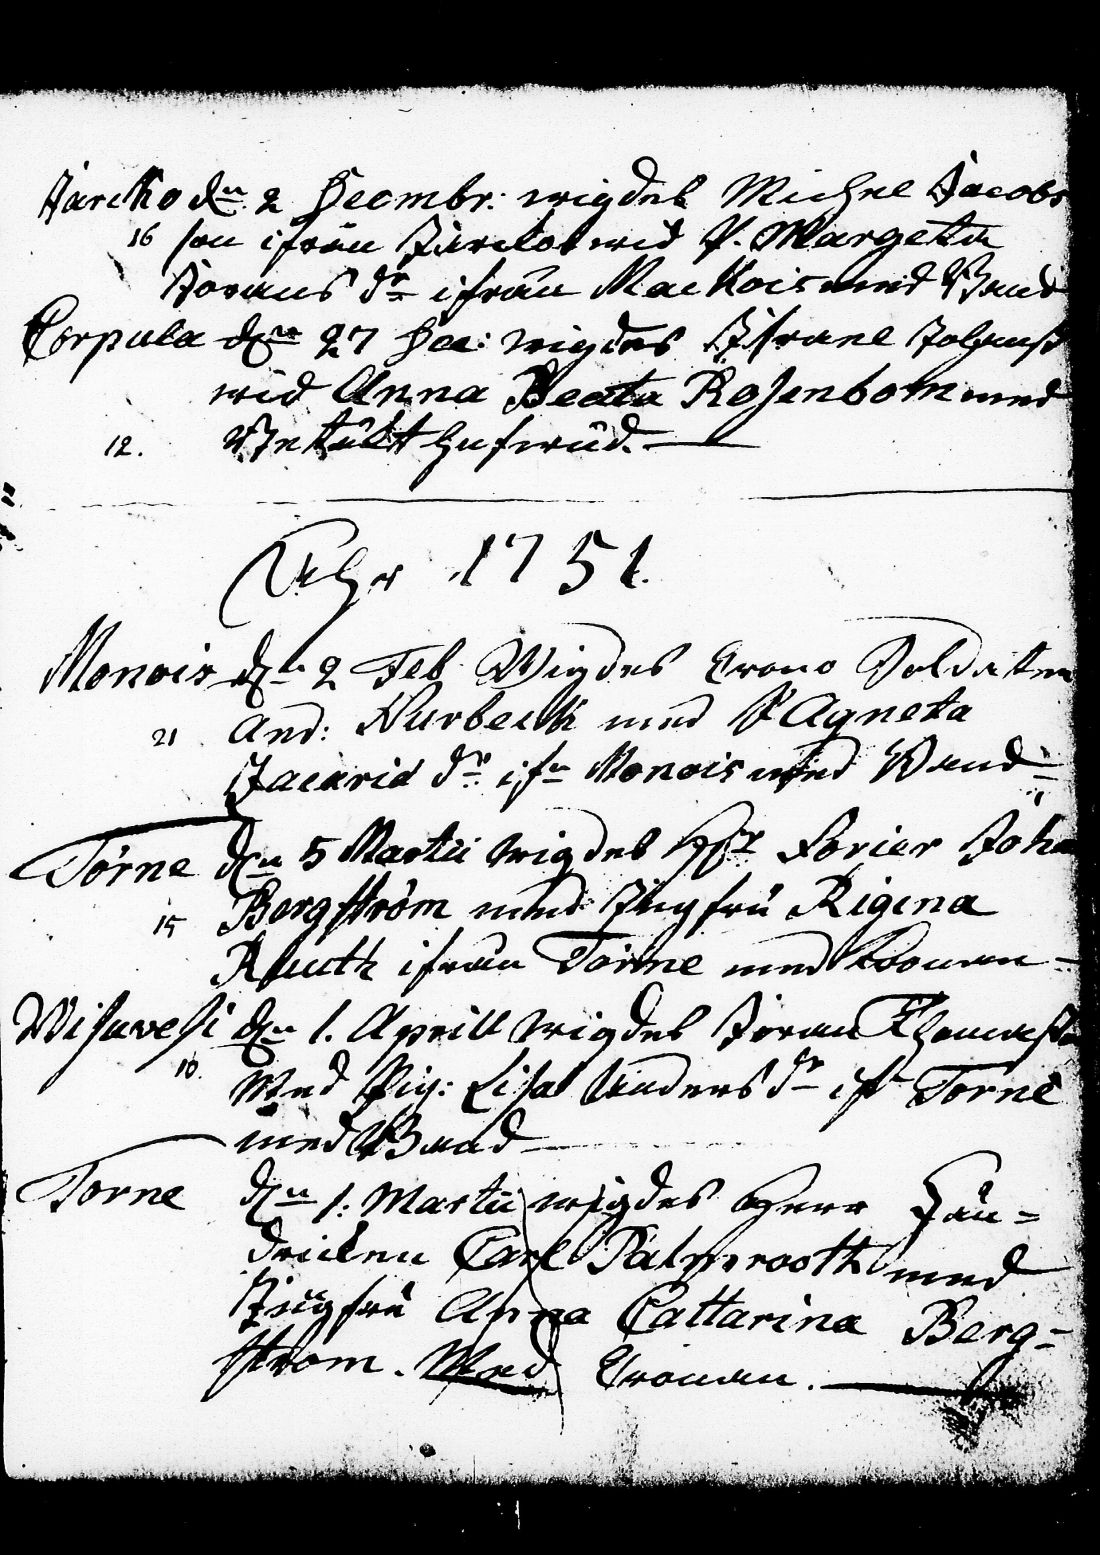 Jarcko d.n 2 Decmbr: wigdes Michel Jacobs
16 son ifrån Jarckois wid P. Margeta
Jörans dr ifrån Mackois med Band
Corpula d.n 27 Dec: wigdes Israel Johans
wid Anna Beata Rosenbom med
12.
Åhr 1751.
Monois d.n 2 Feb Wigdes Crono Soldaten
21 And: Nurbeck med P Agneta
Zacarid dr ifn Monois med Band
Torne d.n 5 Martii wigdes Forier Joha
15 Bergström med Jungfru Rigina
Ruuth ifrån Torne med Cronan
Wisavesi d.n 1. Aprill wigdes Jöran Thomass
10. Med Pig: Lisa Anders dr ifr Torne
med Band
Torne d.n 1: Martii wigdes Herr Fän=
dricken Carl Palmrooth med
Jungfru Anna Cattarina Berg=
strom. Med Cronan.